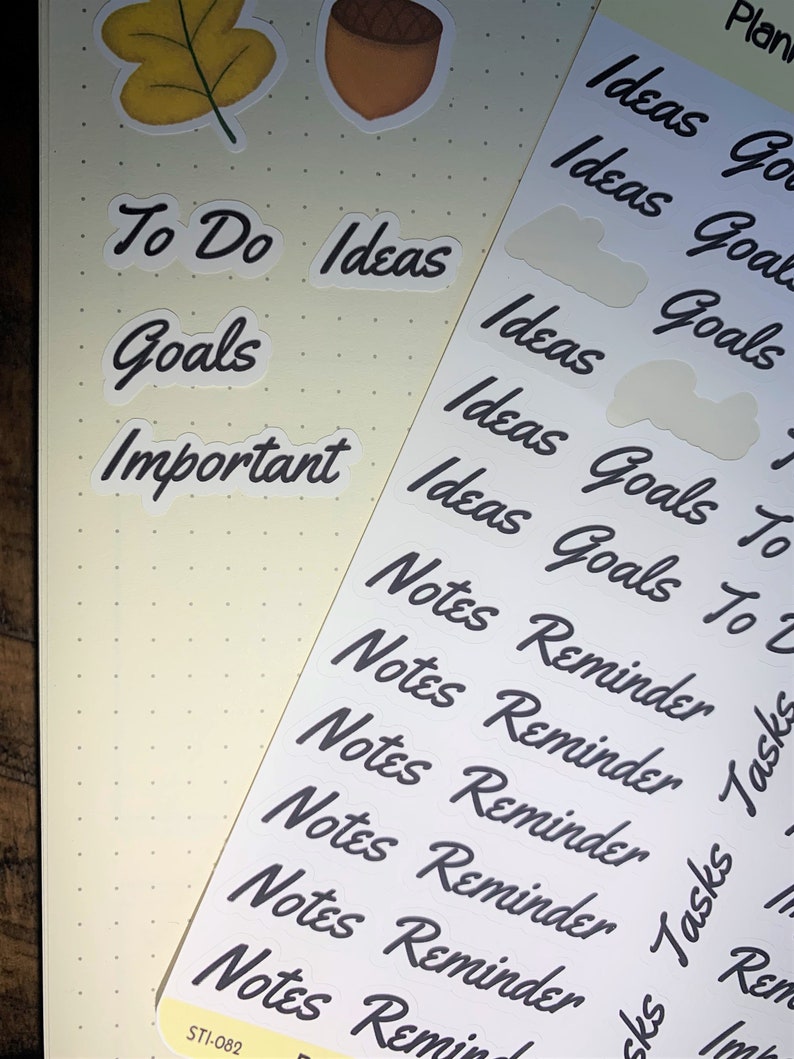 To Do Ideas
Goals
Important
Plann
Ideas Goa
Ideas Goals
Goals
Ideas
Ideas Goals To
Ideas Goals To D
Notes Reminder
Notes Reminder
Notes Reminder
Notes Reminder
Notes Reminder
Notes Remind
Tasks
Tasks
sks
Rem
Imp
STI-082